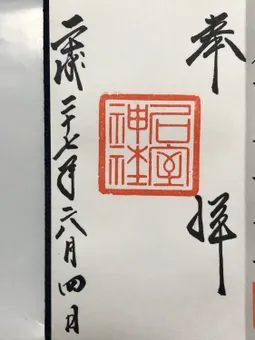 奉拝
石室神社
平成二十七年六月四日